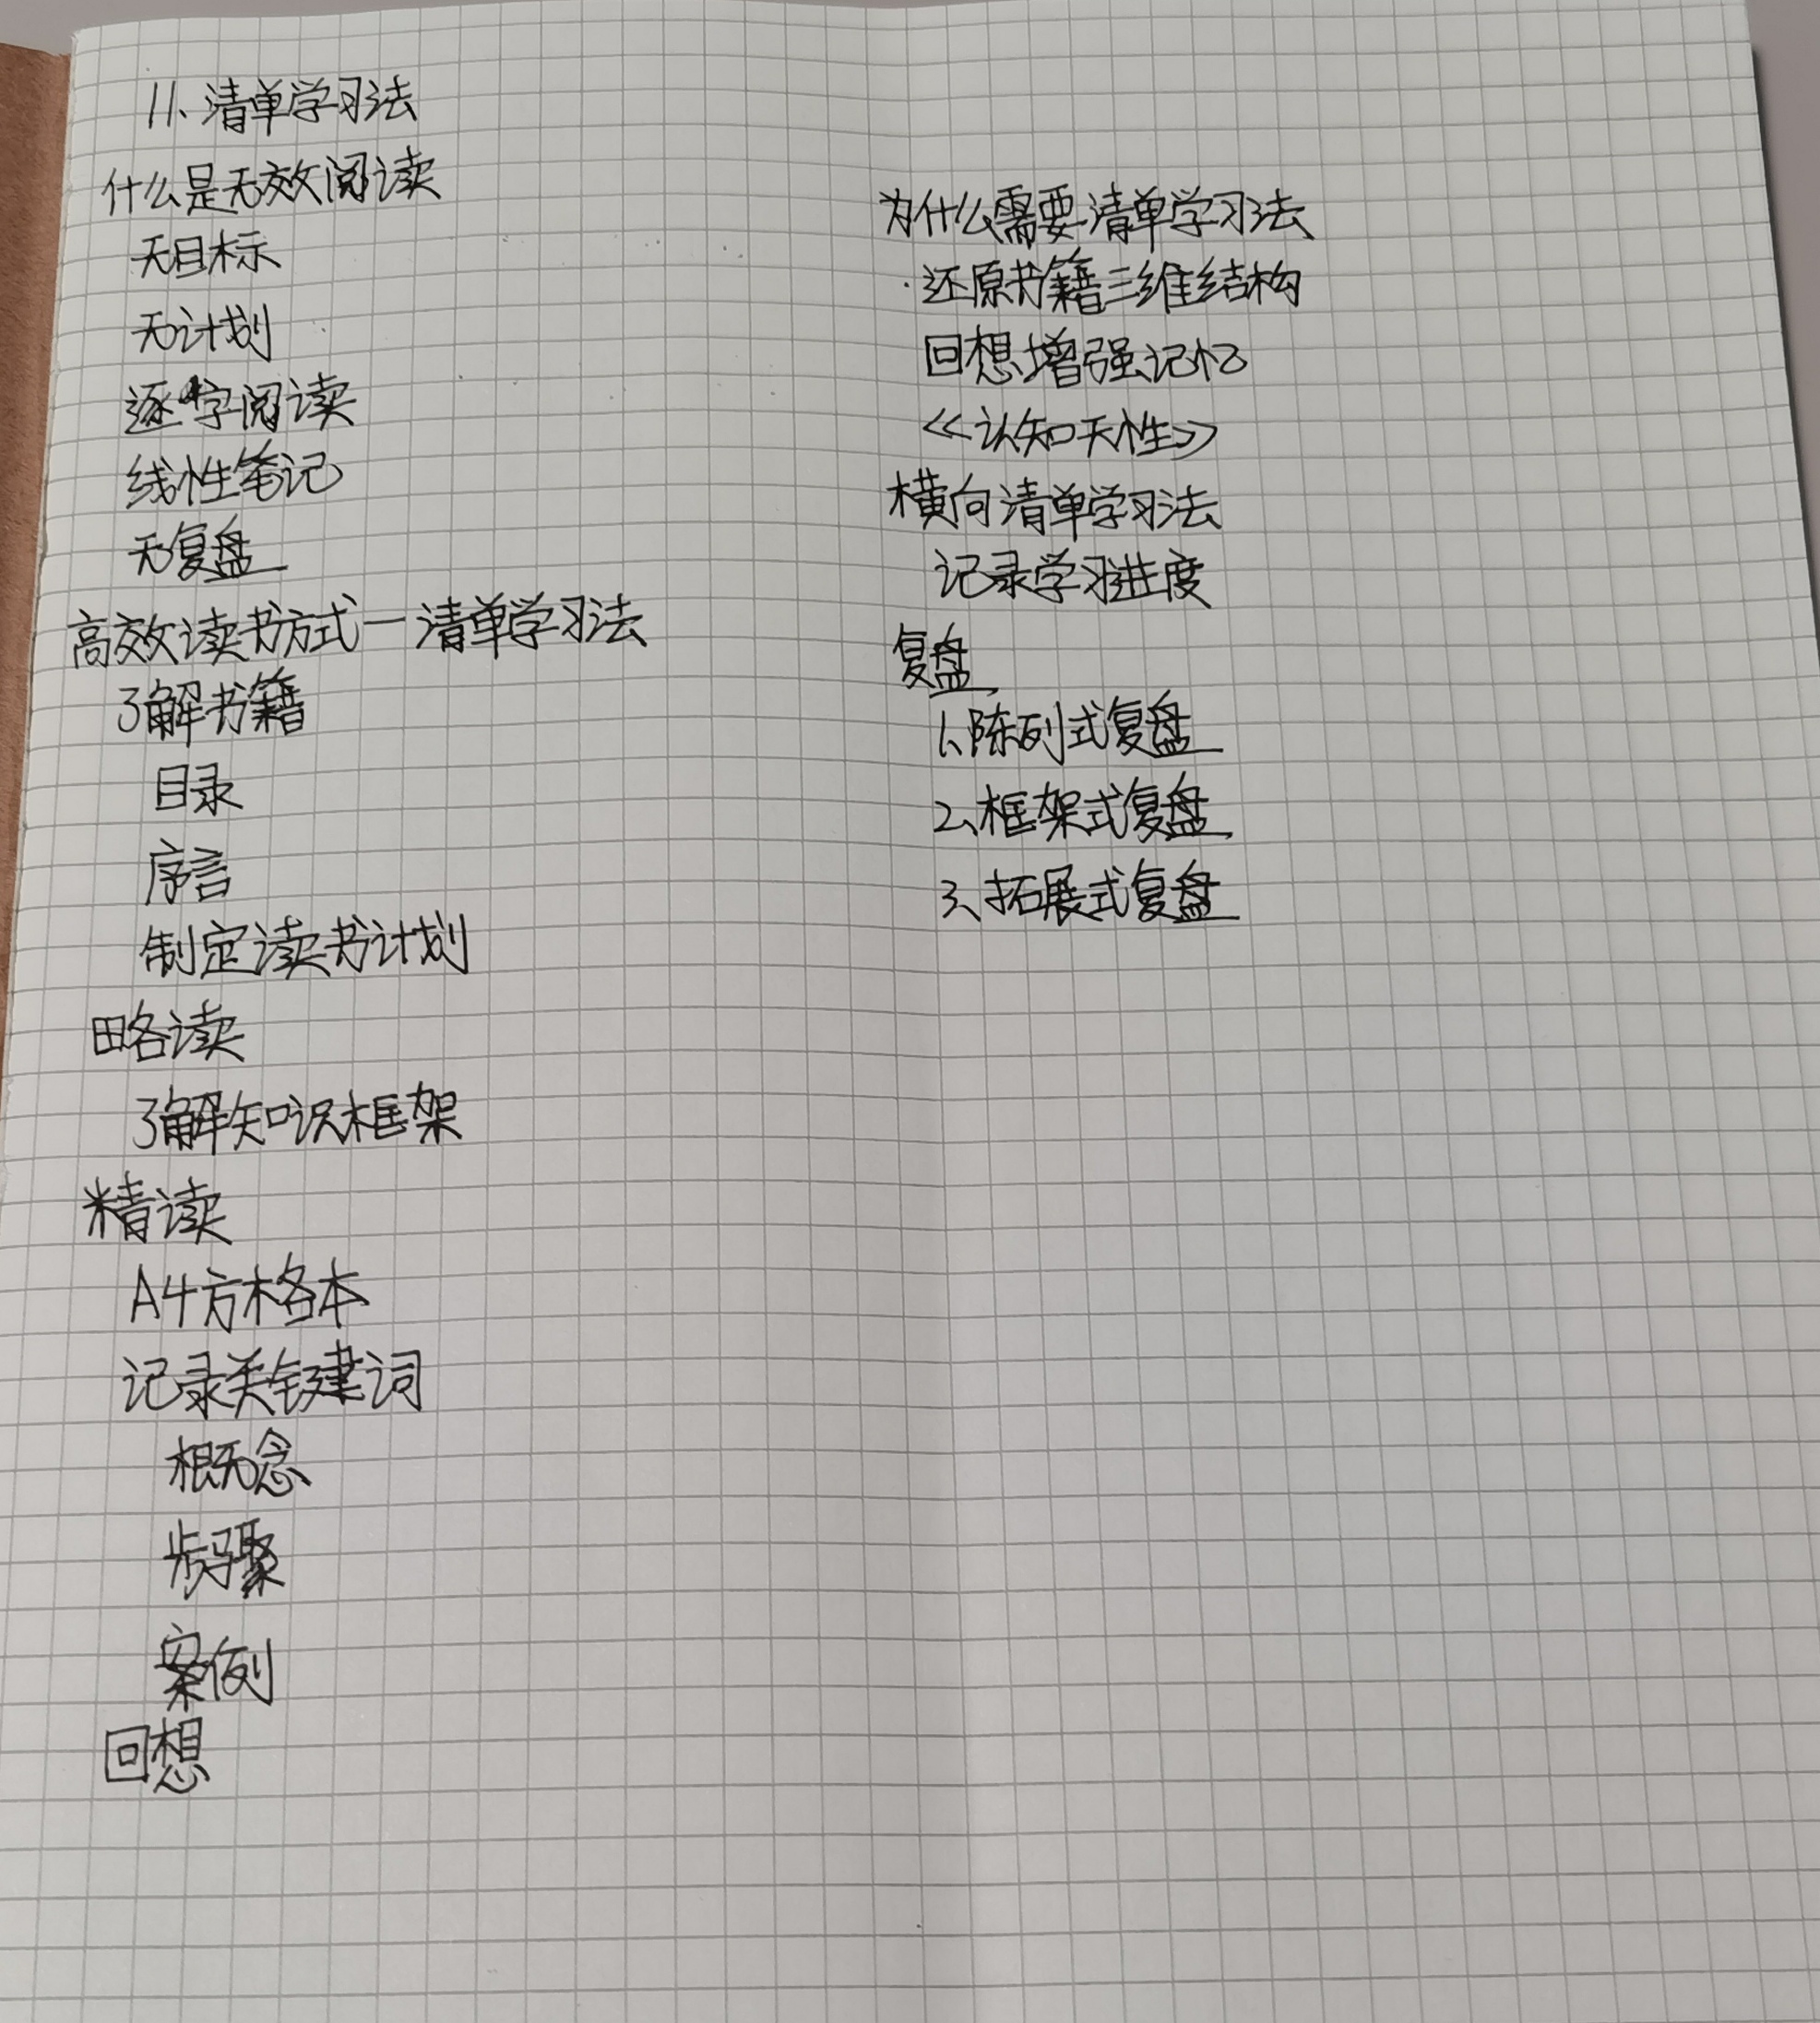 11、清单学习法
什么是无效阅读
无目标
无计划
逐字阅读
线性笔记
无复盘
高效读书方式一清单学习法
了解书籍
目录
序言
制定读书计划
略读
了解知识框架
精读
A4方格本
记录关键词
概念
步骤
案例
回想
为什么需要清单学习法
·还原书籍三维结构
回想增强记忆
<<认知天性>>
横向清单学习法
记录学习进度
复盘
1、陈列式复盘
2、框架式复盘
3、拓展式复盘